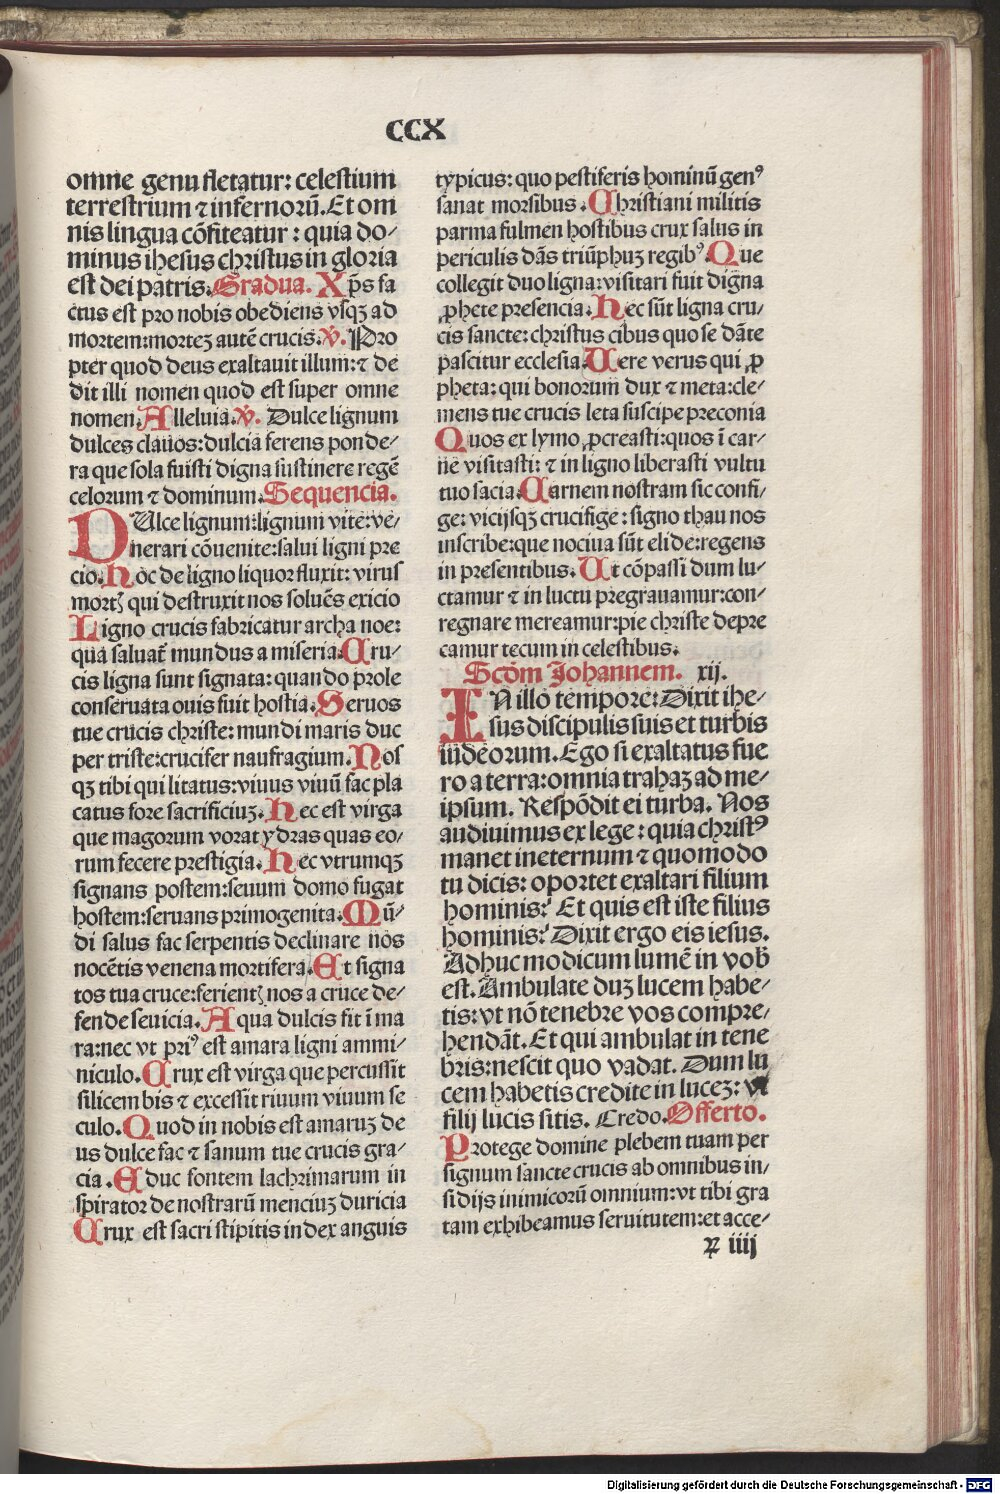 CCX
omne genu flectatur: celestium
terrestrium ⁊ infernorū. Et om
nis lingua cōfiteatur: quia do⸗
minus ihesus christus in gloria
est dei patris. Gradua. Xp̄s fa
ctus est pro nobis obediens vsqꝫ ad
mortem: morteꝫ autē crucis. ℣. Pro
pter quod deus exaltauit illum: ⁊ de
dit illi nomen quod est super omne
nomen. Alleluia. ℣. Dulce lignum
dulces clauos: dulcia ferens ponde⸗
ra que sola fuisti digna sustinere regē
celorum ⁊ dominum. Sequencia.
DUlce lignum: lignum vite: ve⸗
nerari cōuenite: salui ligni pre
cio. Hoc de ligno liquor fluxit: virus
mortꝭ qui destruxit nos soluēs exicio
Ligno crucis fabricatur archa noe:
qua saluat̄ mundus a miseria. Cru⸗
cis ligna sunt signata: quando prole
conseruata ouis fuit hostia. Seruos
tue crucis christe: mundi maris duc
per triste: crucifer naufragium. Nos
qꝫ tibi qui litatus: viuus viuū fac pla
catus fore sacrificiuꝫ. Hec est virga
que magorum vorat ydras quas eo⸗
rum fecere prestigia. Hec vtrumqꝫ
signans postem: seuum domo fugat
hostem: seruans primogenita. Mū⸗
di salus fac serpentis declinare nos
nocētis venena mortifera. Et signa
tos tua cruce: ferientꝭ nos a cruce de⸗
fende seuicia. Aqua dulcis fit ī ma
ra: nec vt priꝰ est amara ligni ammi⸗
niculo. Crux est virga que percussit
silicem bis ⁊ excessit riuum viuum se
culo. Quod in nobis est amaruꝫ de
us dulce fac ⁊ sanum tue crucis gra⸗
cia. Educ fontem lachrimarum in
spirator de nostrarū menciuꝫ duricia
Crux est sacri stipitis index anguis
typicus: quo pestiferis hominū genꝰ
sanat morsibus. Christiani militis
parma fulmen hostibus crux salus in
periculis dās triūphuꝫ regibꝰ. Que
collegit duo ligna: visitari fuit digna
ꝓphete presencia. Hec sūt ligna cru⸗
cis sancte: christus cibus quo se dāte
pascitur ecclesia. Uere verus qui ꝓ
pheta: qui bonorum dux ⁊ meta: cle⸗
mens tue crucis leta suscipe preconia
Quos ex lymo ꝓcreasti: quos ī car⸗
ne visitasti: ⁊ in ligno liberasti vultu
tuo sacia. Carnem nostram sic confi⸗
ge: vicijsqꝫ crucifige: signo thau nos
inscribe: que nociua sūt elide: regens
in presentibus. Ut cōpassi dum lu⸗
ctamur ⁊ in luctu pregrauamur: con⸗
regnare mereamur: pie christe depre
camur tecum in celestibus.
Scd̄m Johannem. xij.
IN illo tempore: Dixit ihe⸗
sus discipulis suis et turbis
iudeorum. Ego si exaltatus fue
ro a terra: omnia trahaꝫ ad me⸗
ipsum. Respōdit ei turba. Nos
audiuimus ex lege: quia christꝰ
manet in eternum ⁊ quomodo
tu dicis: oportet exaltari filium
hominis? Et quis est iste filius
hominis? Dixit ergo eis iesus.
Adhuc modicum lumē in vob̄
est. Ambulate duꝫ lucem habe⸗
tis: vt nō tenebre vos compre⸗
hendāt. Et qui ambulat in tene
bris: nescit quo vadat. Dum lu
cem habetis credite in luceꝫ: vt
filij lucis sitis. Credo. Offerto.
Protege domine plebem tuam per
signum sancte crucis ab omnibus in⸗
sidijs inimicorū omnium: vt tibi gra
tam exhibeamus seruitutem: et acce⸗
ꝶ iiij
Digitalisierung gefördert durch die Deutsche Forschungsgemeinschaft - DFG